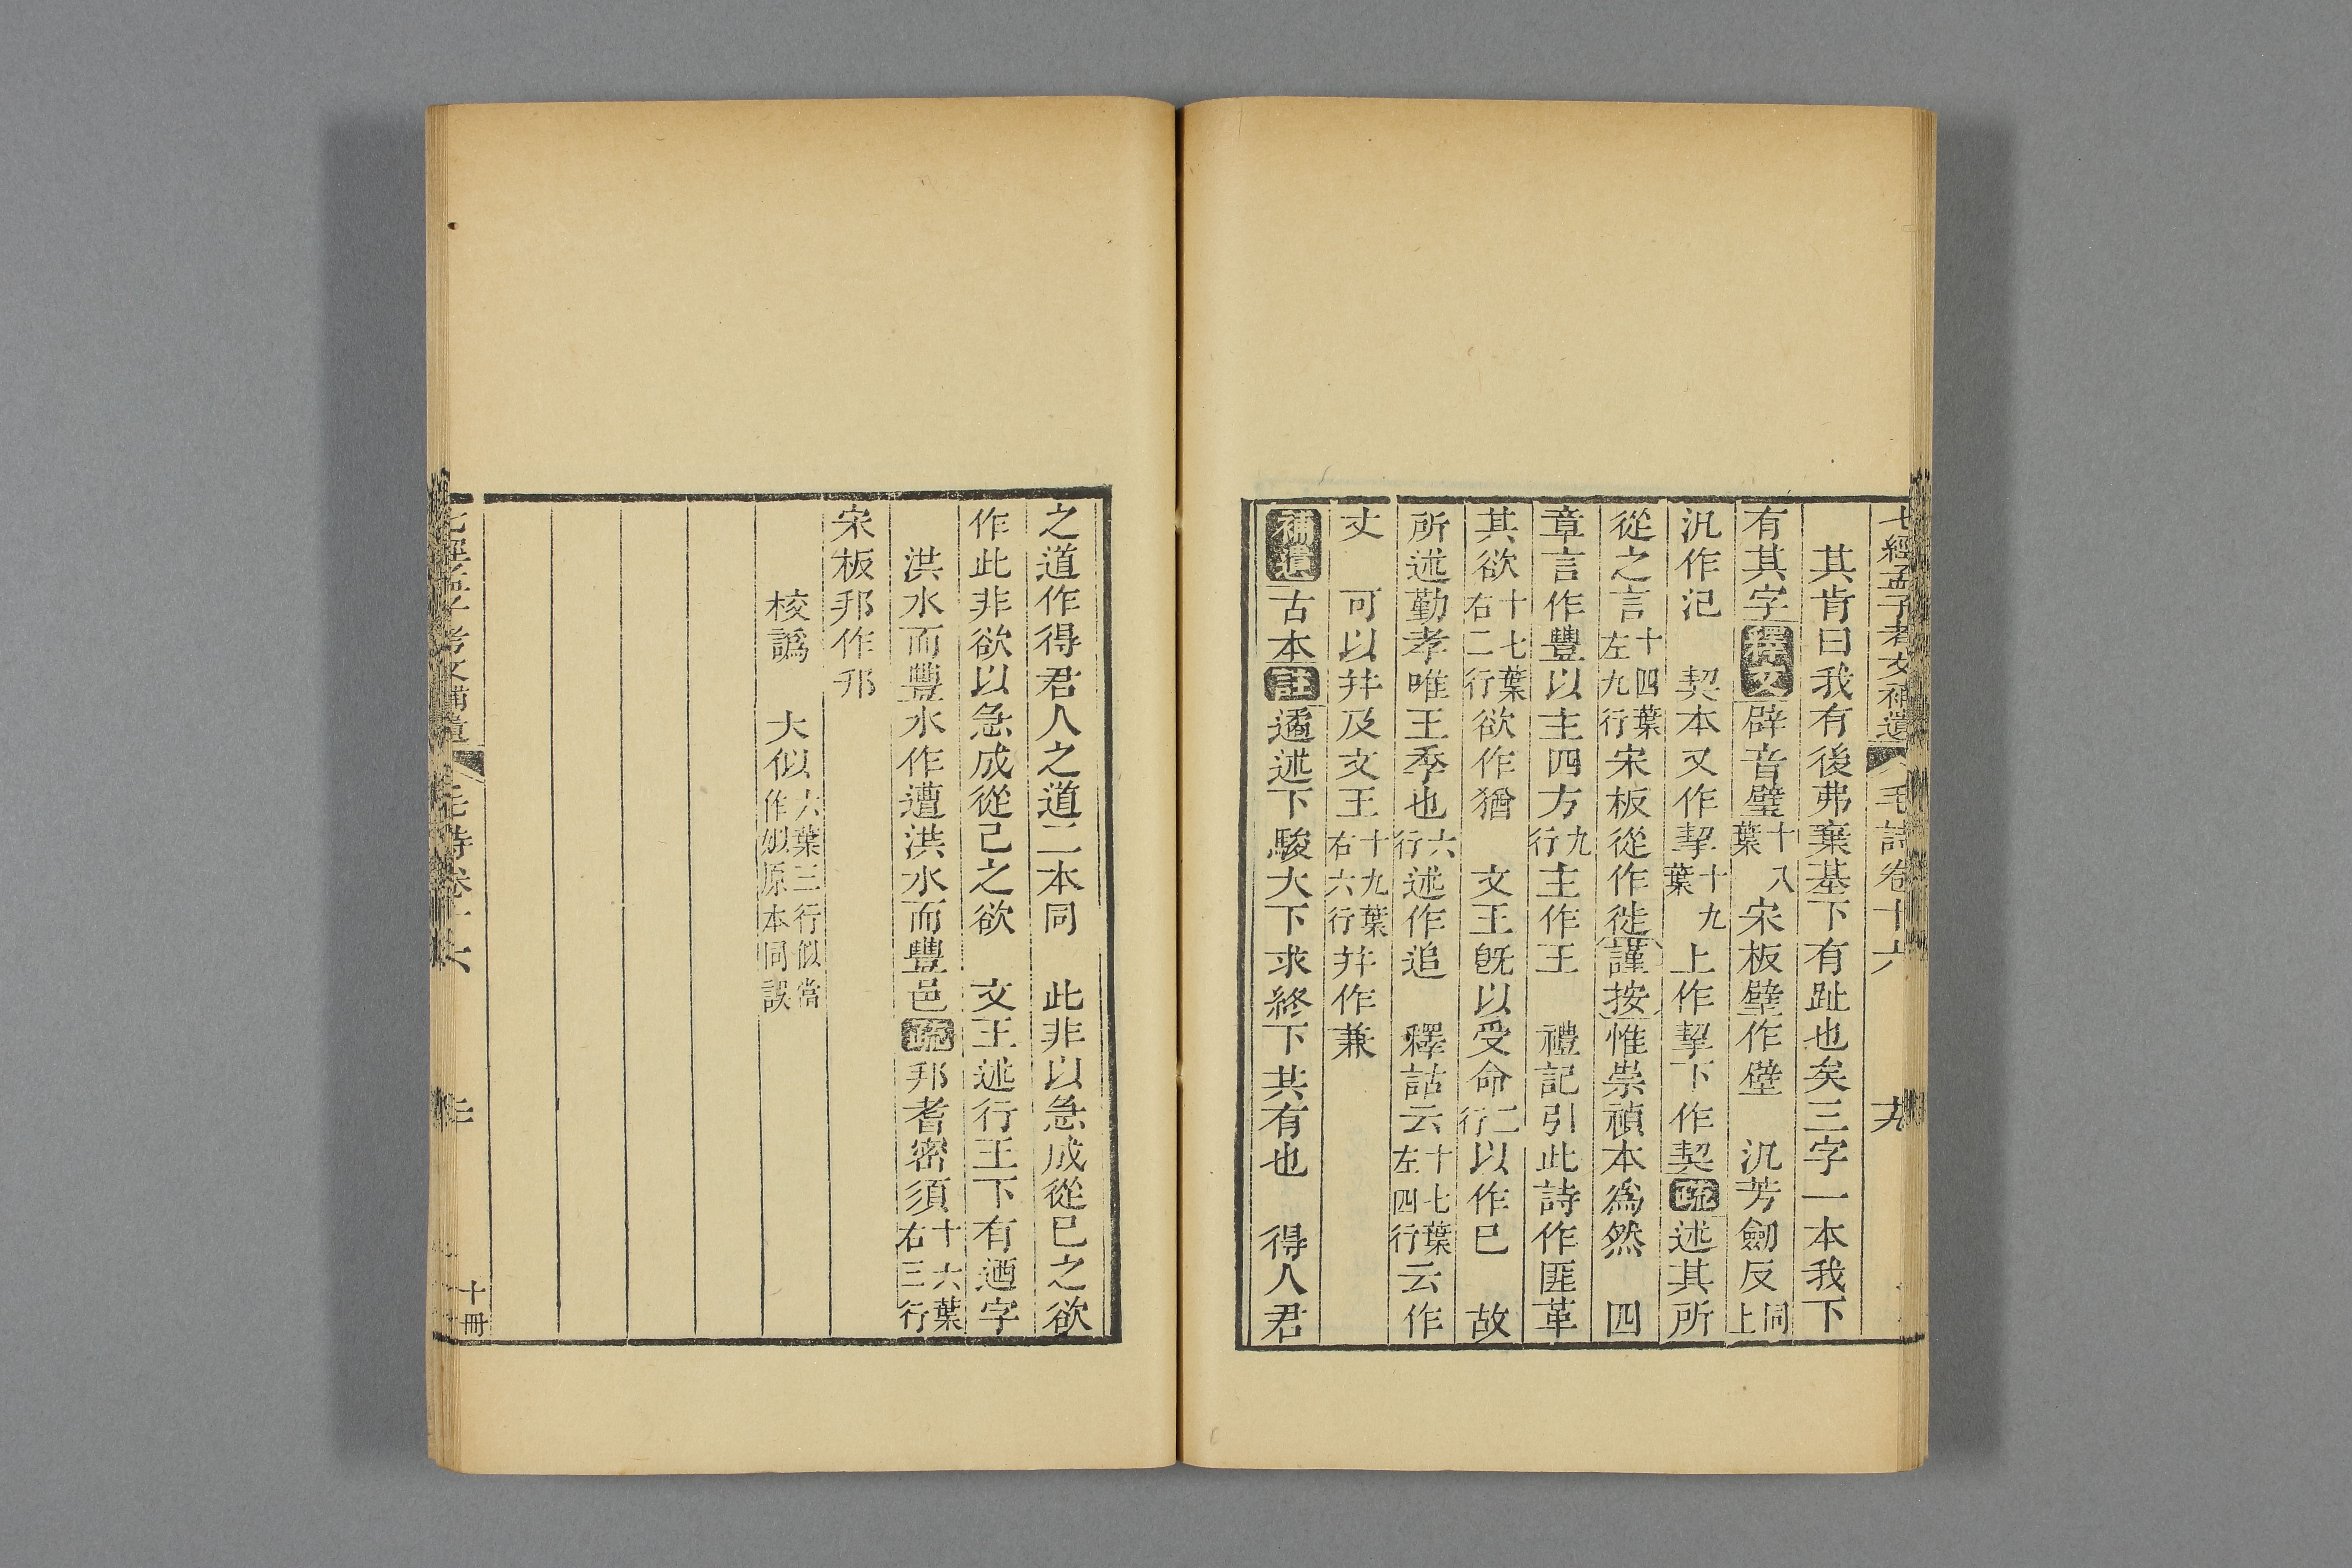 七經孟子考文補遺 毛詩卷十六 十九
其肯曰我有後弗棄基下有趾也矣三字一本我下
有其字釋文辟音璧十八葉宋板璧作壁 汎芳劒反同上
汎作汜 契本又作挈十九葉上作挈下作契疏述其所
從之言十四葉左九行宋板從作徙謹按惟崇禎本爲然 四
章言作豐以主四方九行主作王 禮記引此詩作匪革
其欲十七葉右二行欲作猶 文王旣以受命二行以作巳 故
所述勤孝唯王季也六行述作追 釋詁云十七葉左四行云作
丈 可以幷及文王十九葉右六行幷作兼
補遺古本註遹述下駿大下求終下共有也 得人君
之道作得君人之道二本同 此非以急成從巳之欲
作此非欲以急成從己之欲 文王述行王下有遒字
洪水而豐水作遭洪水而豐邑疏邦耆密須十六葉右三行
宋板邦作邘
校譌 大似六葉三行似當作姒原本同誤
七經孟子考文補遺 毛詩卷十六 二十 十冊